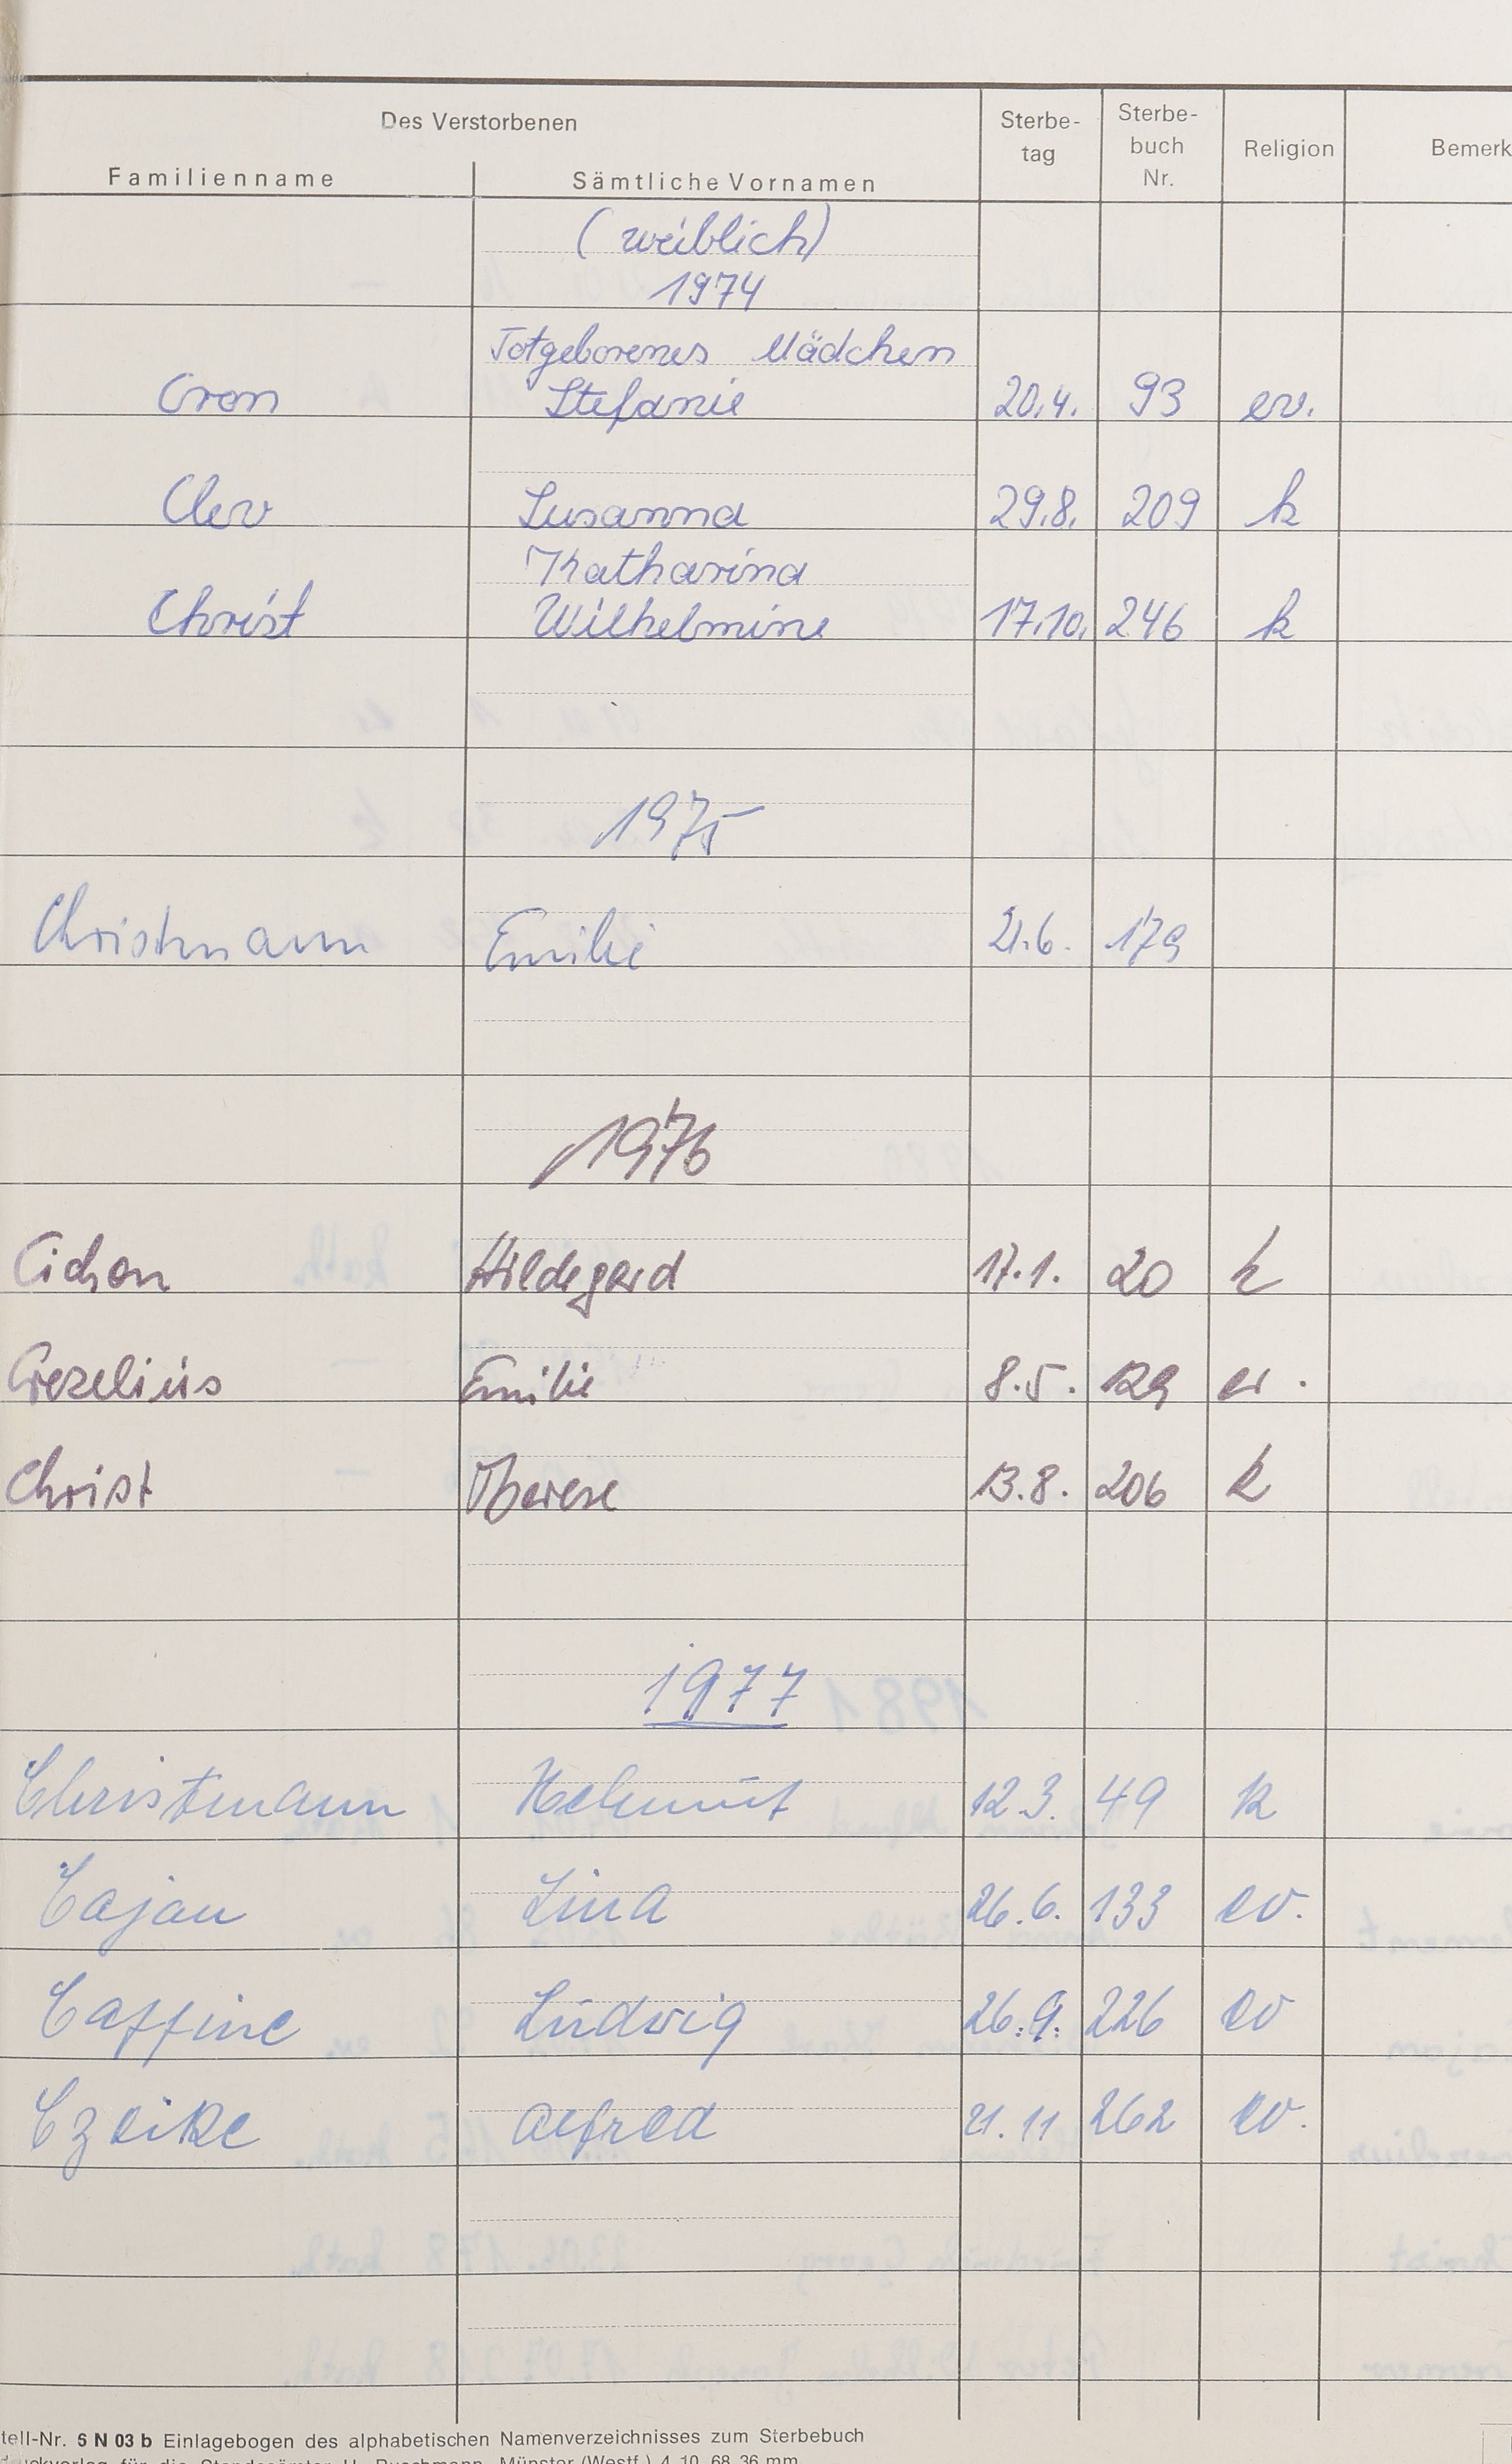 Des Verstorbenen
Familienname Sämtliche Vornamen Sterbe-tag Sterbe-buch Nr. Religion Bemerk
(weiblich)
1974
Totgeborenes Mädchen
Cron Stefanie 20.4. 93 ev.
Clev Susanna 29.8. 209 k
Katharina
Christ Wilhelmine 17.10. 246 k
1975
Christmann Emilie 21.6. 179
1976
Cichon Hildegard 17.1. 20 k
Crezelius Emilie 8.5. 129 ev.
Christ Therese 13.8. 206 k
1977
Christmann Helmut 12.3. 49 k
Cajau Lina 26.6. 133 ev.
Caffine Ludwig 26.9. 226 ev
Czeike Alfred 21.11 262 ev.
tell-Nr. 5 N 03 b Einlagebogen des alphabetischen Namenverzeichnisses zum Sterbebuch